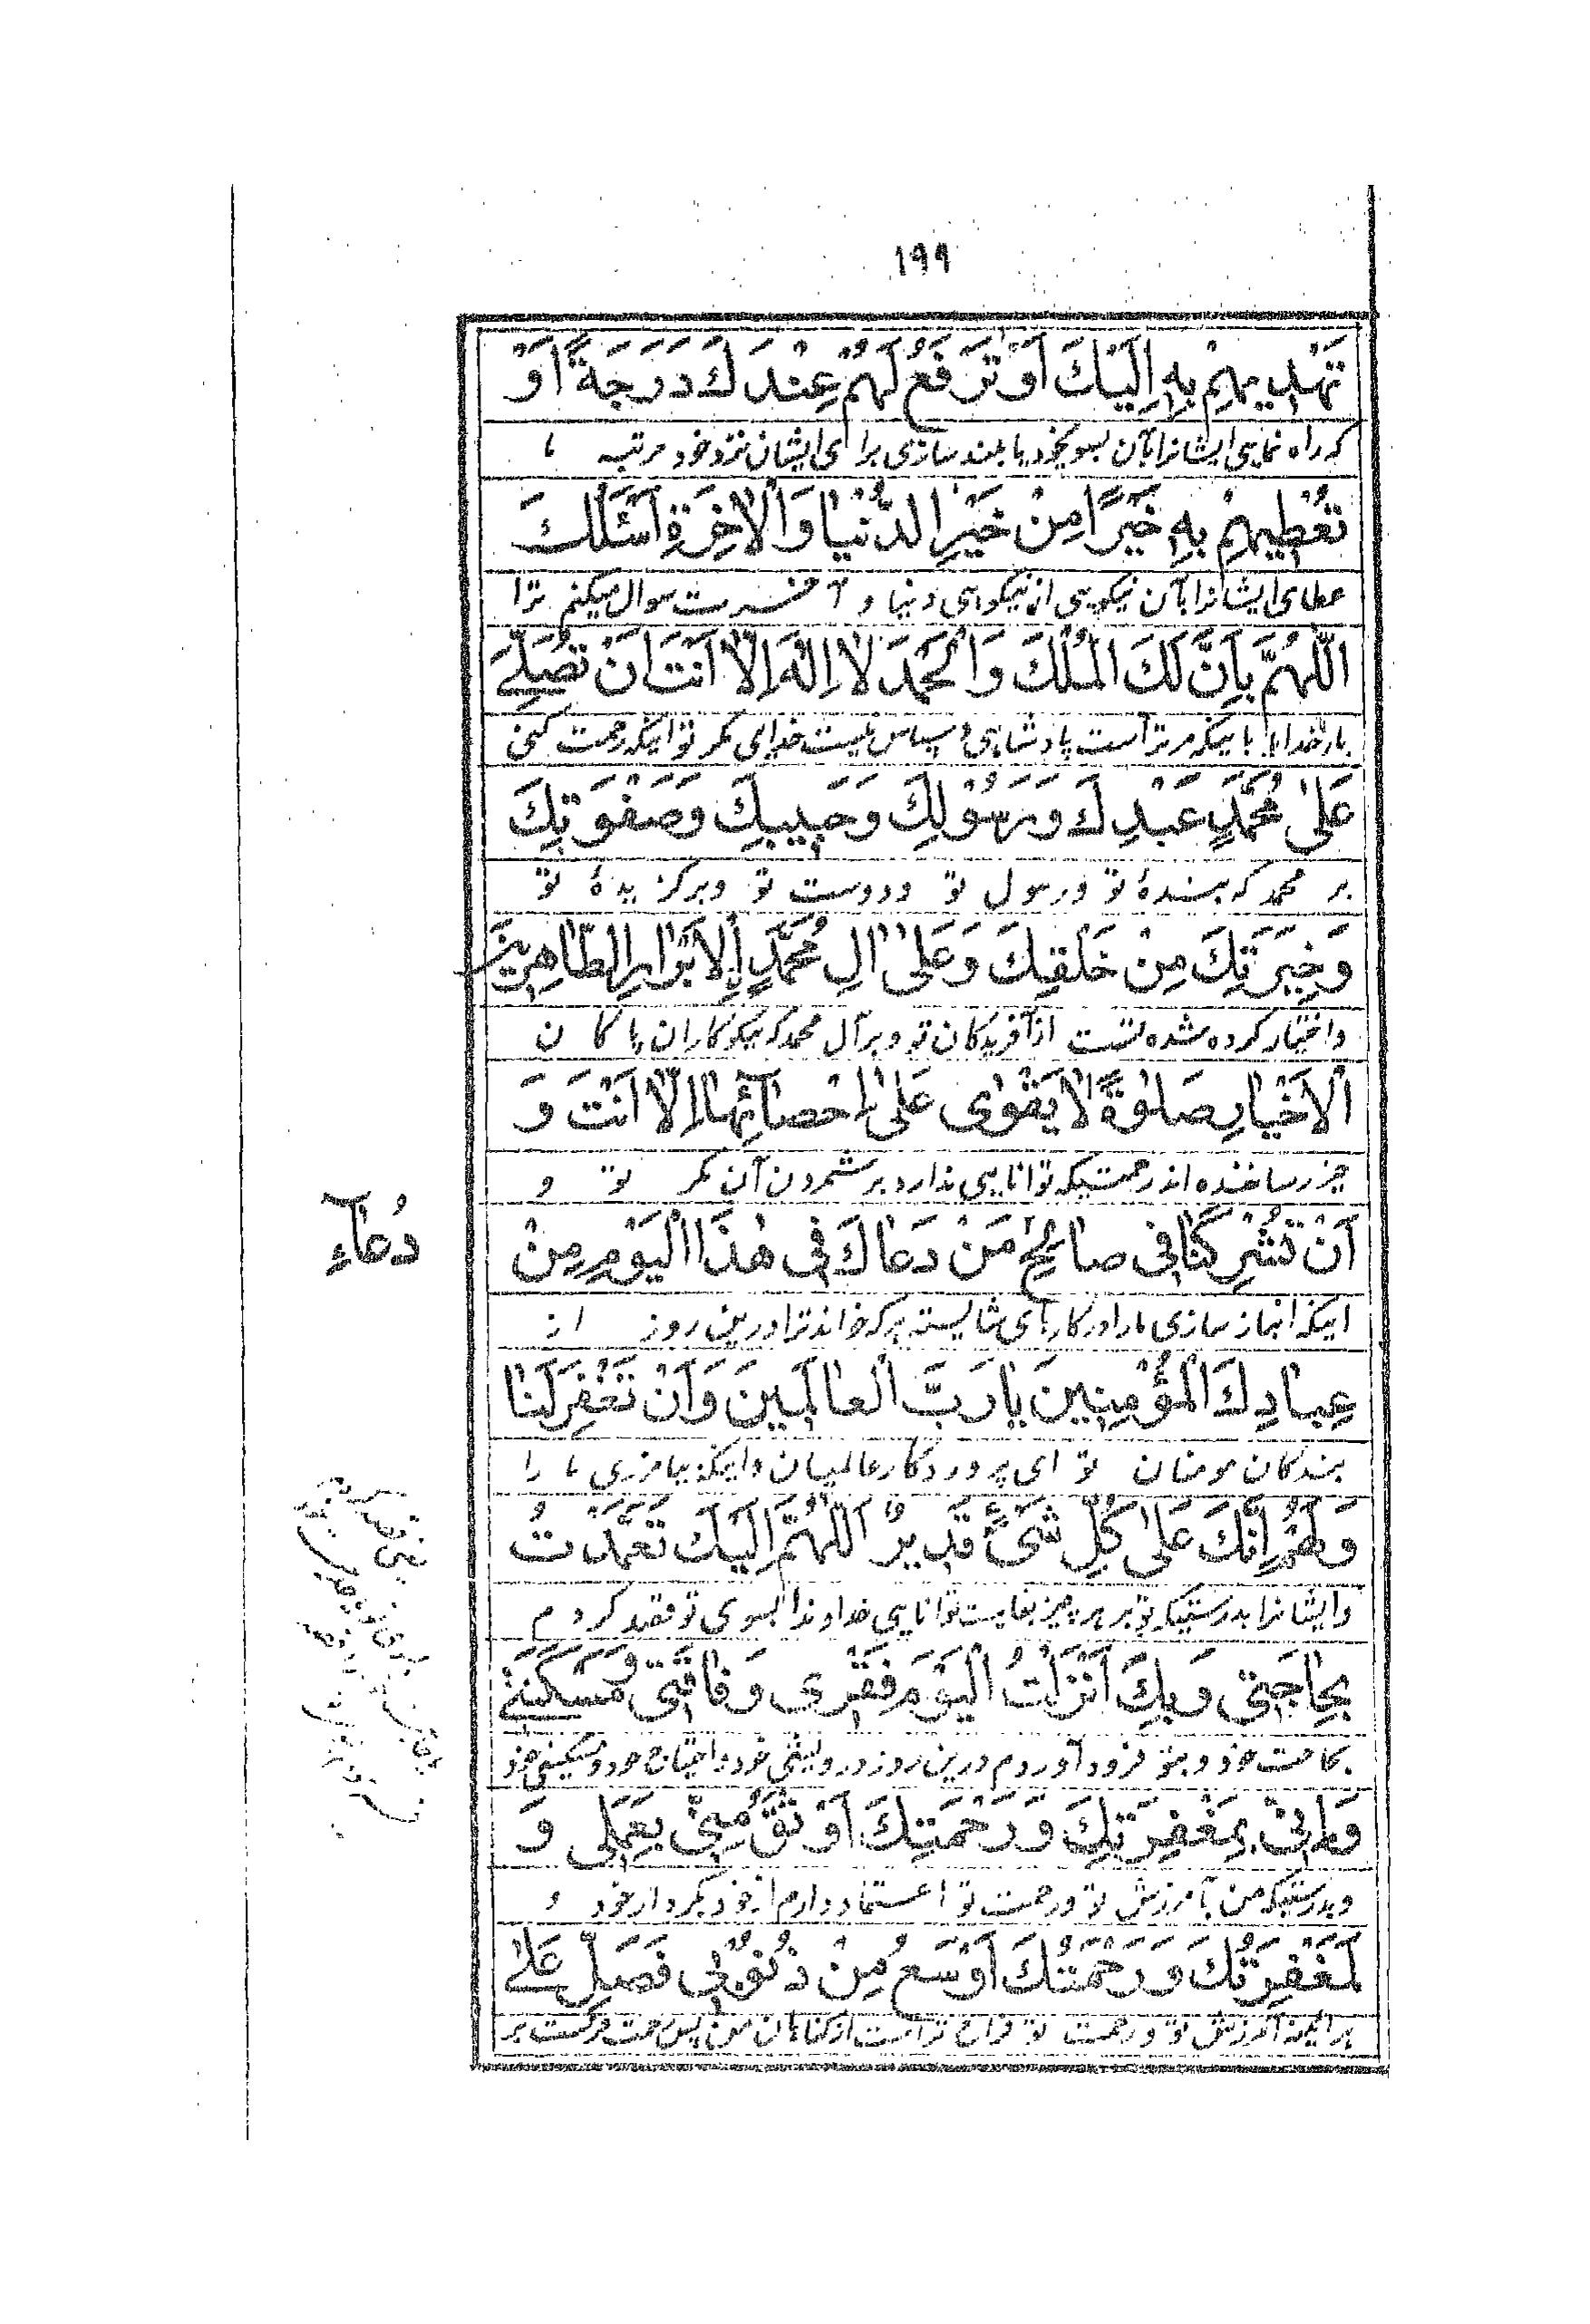 ۱۹۹
تَهْدِيهِمْ بِهِ اِلَيْكَ اَوْ تَرْفَعُ لَهُمْ عِنْدَكَ دَرَجَةً اَوْ
که راه نمایی ایشانرا بآن بسوی خود یا بلند سازی برای ایشان نزد خود مرتبه یا
تُعْطِيهِمْ بِهِ خَيْرًا مِنْ خَيْرِ الدُّنْيَا وَالْاٰخِرَةِ اَسْئَلُكَ
عطای ایشانرا بآن نیکویی از نیکویی دنیا و آخرت سوال میکنم ترا
اللّٰهُمَّ بِاَنَّ لَكَ الْمُلْكَ وَالْحَمْدَ لَا اِلٰهَ اِلَّا اَنْتَ اَنْ تُصَلِّيَ
بارخدایا باینکه مرتراست پادشاهی و سپاس نیست خدای مگر تو اینکه رحمت کنی
عَلٰى مُحَمَّدٍ عَبْدِكَ وَرَسُوْلِكَ وَحَبِيبِكَ وَصَفْوَتِكَ
بر محمد که بندۀ تو و رسول تو و دوست تو و برگزیدۀ تو
وَخِيَرَتِكَ مِنْ خَلْقِكَ وَعَلٰى اٰلِ مُحَمَّدٍ الْاَبْرَارِ الطَّاهِرِينَ
و اختیار کرده شده تست از آفریدگان تو و بر آل محمد که نیکوکاران پاکان
الْاَخْيَارِ صَلٰوةً لَا يَقْوٰى عَلٰى اِحْصَائِهَا اِلَّا اَنْتَ وَ
خیر رساننده اند رحمتیکه توانایی ندارد بر شمردن آن مگر تو و
اَنْ تُشْرِكَنَا فِى صَالِحِ مَنْ دَعَاكَ فِى هٰذَا الْيَوْمِ مِنْ
اینکه انباز سازی مارا در کارهای شایسته هر که خواند ترا درین روز از
دُعآءِ
عِبَادِكَ الْمُؤْمِنِينَ يَا رَبَّ الْعَالَمِينَ وَاَنْ تَغْفِرَ لَنَا
بندگان مومنان تو ای پروردگار عالمیان و اینکه بیامرزی ما را
وَلَهُمْ اِنَّكَ عَلٰى كُلِّ شَىْءٍ قَدِيرٌ اَللّٰهُمَّ اِلَيْكَ تَعَمَّدْتُ
و ایشانرا بدرستیکه تو بر هر چیز بغایت توانایی خداوندا بسوی تو قصد کردم
بِحَاجَتِى وَبِكَ اَنْزَلْتُ الْيَوْمَ فَقْرِى وَفَاقَتِى وَمَسْكَنَتِى
بحاجت خود و بتو فرود آوردم درین روز درویشی خود و احتیاج خود و مسکینی خود
وَاِنِّى بِمَغْفِرَتِكَ وَرَحْمَتِكَ اَوْثَقُ مِنِّى بِعَمَلِى وَ
و بدرستیکه من بآمرزش تو و رحمت تو اعتماد دارم از خود بکردار خود و
لَمَغْفِرَتُكَ وَرَحْمَتُكَ اَوْسَعُ مِنْ ذُنُوْبِى فَصَلِّ عَلٰى
هر آینه آمرزش تو و رحمت تو فراخ تر است از گناهان من پس رحمت فرست بر